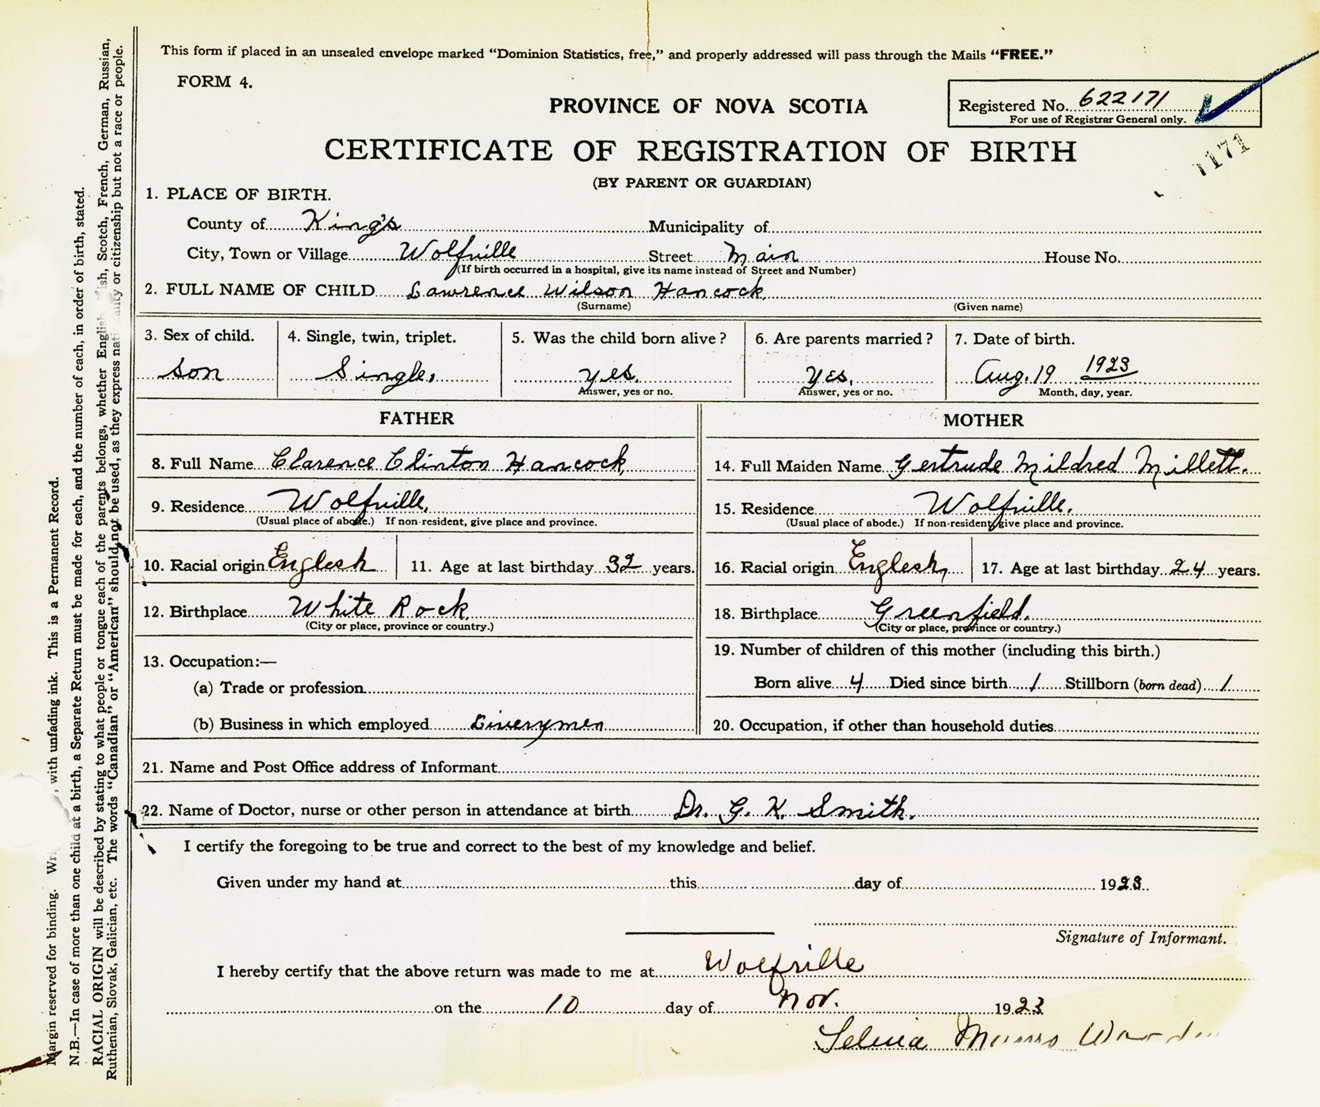 This form if placed in an unsealed envelope marked "Dominion Statistics, free," and properly addressed will pass through the Mails "FREE."
FORM 4.
PROVINCE OF NOVA SCOTIA
Registered No. 622171
For use of Registrar General only.
1171
CERTIFICATE OF REGISTRATION OF BIRTH
(BY PARENT OR GUARDIAN)
1. PLACE OF BIRTH.
County of King's Municipality of
City, Town or Village Wolfville Street Main House No.
(If birth occurred in a hospital, give its name instead of Street and Number)
2. FULL NAME OF CHILD Lawrence Wilson Hancock
(Surname) (Given name)
3. Sex of child. 4. Single, twin, triplet. 5. Was the child born alive? 6. Are parents married? 7. Date of birth.
son Single, yes. yes. Aug. 19 1923
Answer, yes or no. Answer, yes or no. Month, day, year.
FATHER MOTHER
8. Full Name Clarence Clinton Hancock 14. Full Maiden Name Gertrude Mildred Millett.
9. Residence Wolfville, 15. Residence Wolfville.
(Usual place of abode.) If non-resident, give place and province. (Usual place of abode.) If non-resident, give place and province.
10. Racial origin Englesh 11. Age at last birthday 32 years. 16. Racial origin Englesh, 17. Age at last birthday 24 years.
12. Birthplace White Rock 18. Birthplace Greenfield.
(City or place, province or country.) (City or place, province or country.)
13. Occupation:— 19. Number of children of this mother (including this birth.)
(a) Trade or profession Born alive 4 Died since birth 1 Stillborn (born dead) 1
(b) Business in which employed Liverymen 20. Occupation, if other than household duties
21. Name and Post Office address of Informant
22. Name of Doctor, nurse or other person in attendance at birth Dr. G. K. Smith.
I certify the foregoing to be true and correct to the best of my knowledge and belief.
Given under my hand at this day of 1923
Signature of Informant.
I hereby certify that the above return was made to me at Wolfville
on the 10 day of Nov. 1923
Selina Munro
Margin reserved for binding. with unfading ink. This is a Permanent Record.
N.B.—In case of more than one child at a birth, a Separate Return must be made for each, and the number of each, in order of birth, stated.
RACIAL ORIGIN will be described by stating to what people or tongue each of the parents belongs, whether English, Scotch, French, German, Russian,
Ruthenian, Slovak, Galician, etc. The words "Canadian" or "American" should not be used, as they express or citizenship but not a race or people.